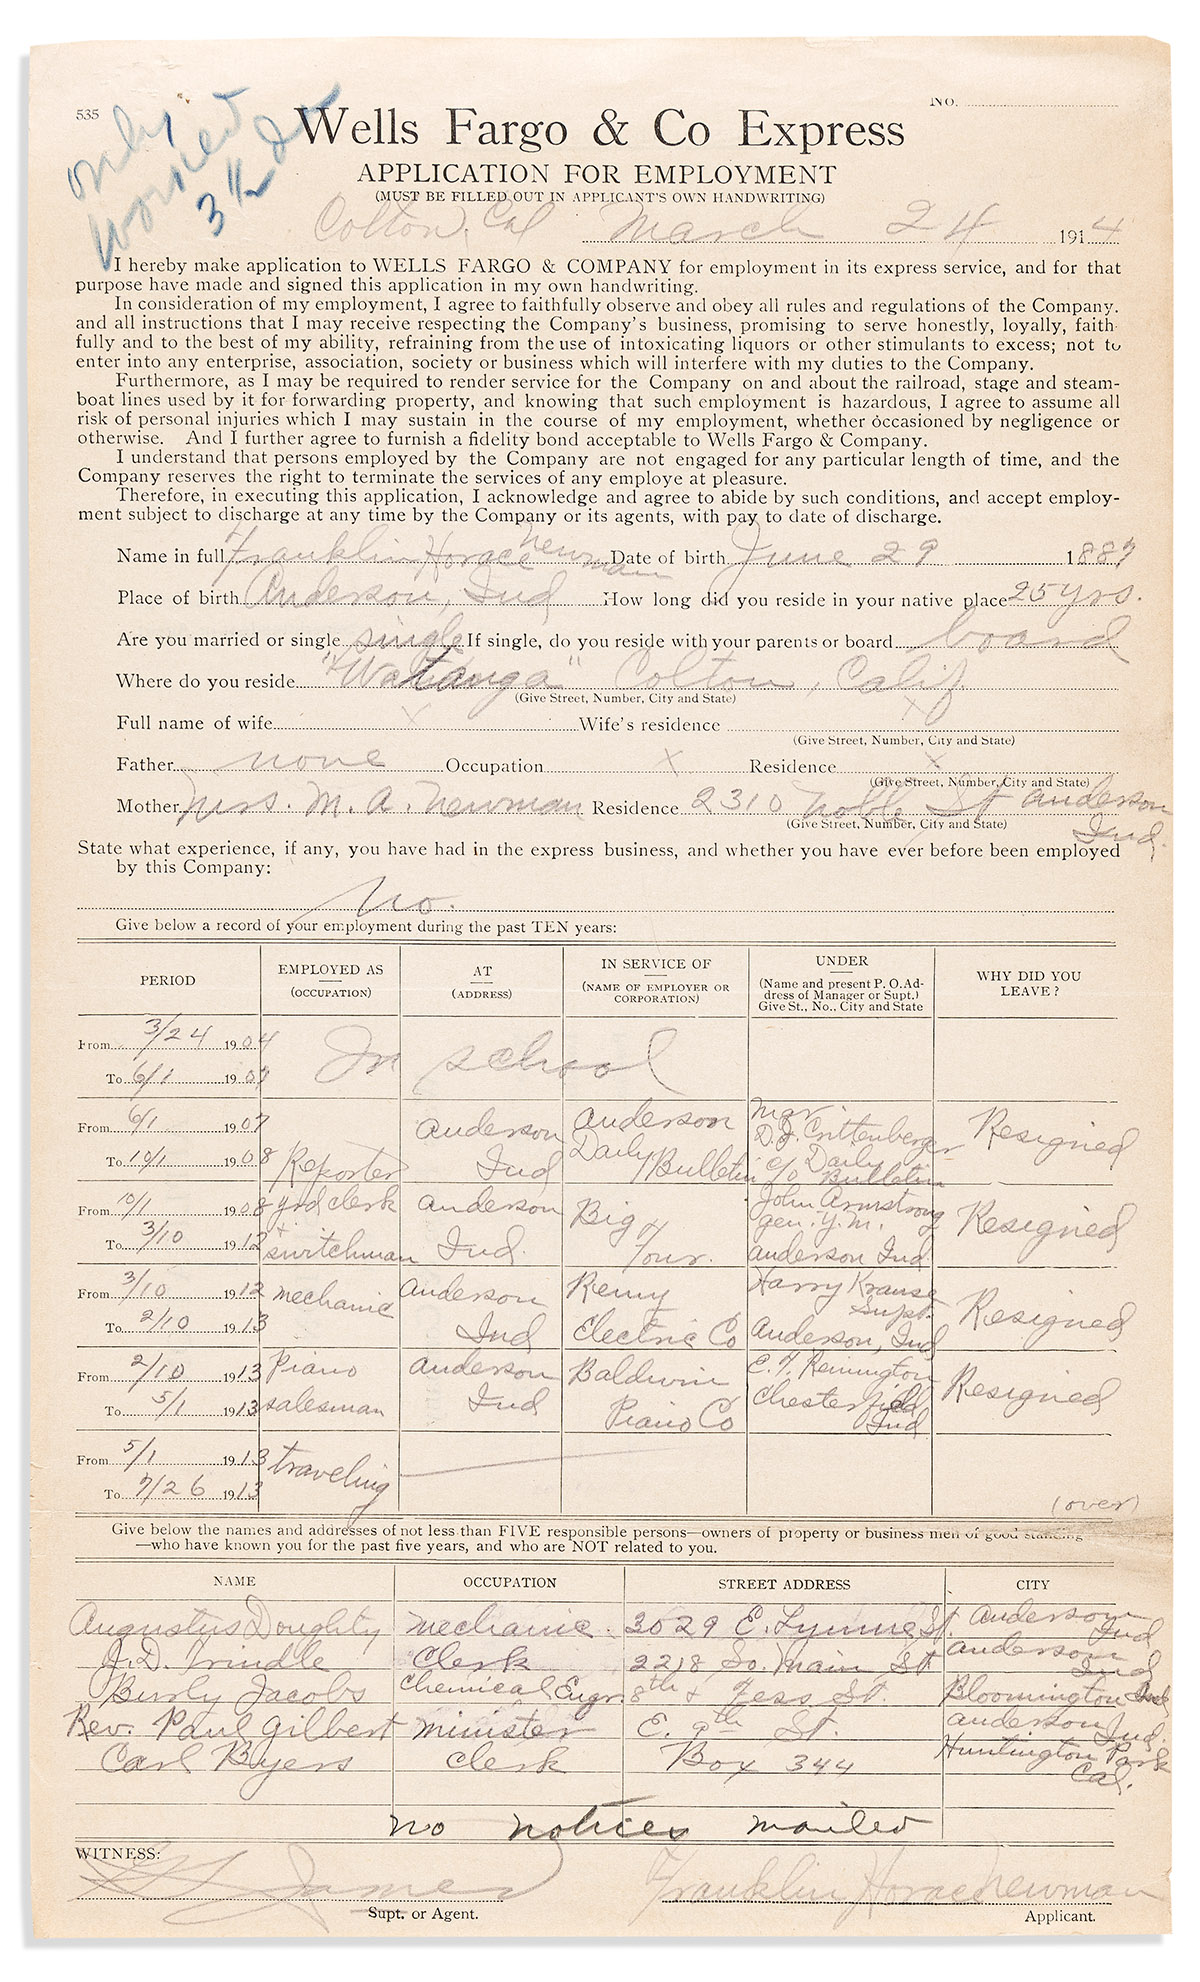 535
NO.
only
worked
3 1/2 da
Wells Fargo & Co Express
APPLICATION FOR EMPLOYMENT
(MUST BE FILLED OUT IN APPLICANT'S OWN HANDWRITING)
Colton, Cal March 24 1914
I hereby make application to WELLS FARGO & COMPANY for employment in its express service, and for that
purpose have made and signed this application in my own handwriting.
In consideration of my employment, I agree to faithfully observe and obey all rules and regulations of the Company.
and all instructions that I may receive respecting the Company's business, promising to serve honestly, loyally, faith
fully and to the best of my ability, refraining from the use of intoxicating liquors or other stimulants to excess; not to
enter into any enterprise, association, society or business which will interfere with my duties to the Company.
Furthermore, as I may be required to render service for the Company on and about the railroad, stage and steam-
boat lines used by it for forwarding property, and knowing that such employment is hazardous, I agree to assume all
risk of personal injuries which I may sustain in the course of my employment, whether occasioned by negligence or
otherwise. And I further agree to furnish a fidelity bond acceptable to Wells Fargo & Company.
I understand that persons employed by the Company are not engaged for any particular length of time, and the
Company reserves the right to terminate the services of any employe at pleasure.
Therefore, in executing this application, I acknowledge and agree to abide by such conditions, and accept employ-
ment subject to discharge at any time by the Company or its agents, with pay to date of discharge.
Name in full Franklin Horace Newman Date of birth June 29 1887
Place of birth Anderson, Ind How long did you reside in your native place 25 yrs.
Are you married or single single If single, do you reside with your parents or board board
Where do you reside "Watanga" Colton, Calif.
(Give Street, Number, City and State)
Full name of wife X Wife's residence X
(Give Street, Number, City and State)
Father none Occupation X Residence X
(Give Street, Number, City and State)
Mother Mrs. M. A. Newman Residence 2310 Noble St Anderson
(Give Street, Number, City and State) Ind.
State what experience, if any, you have had in the express business, and whether you have ever before been employed
by this Company:
No.
Give below a record of your employment during the past TEN years:
PERIOD EMPLOYED AS (OCCUPATION) AT (ADDRESS) IN SERVICE OF (NAME OF EMPLOYER OR CORPORATION) UNDER (Name and present P. O. Address of Manager or Supt.) Give St., No., City and State WHY DID YOU LEAVE?
From 3/24 1904 In school
To 6/1 1907
From 6/1 1907 Reporter Anderson Ind Anderson Daily Bulletin Mgr. D. J. Crittenberger c/o Daily Bulletin Resigned
To 10/1 1908
From 10/1 1908 yrd clerk & switchman Anderson Ind. Big Four. John Armstrong gen. y.m. Anderson Ind Resigned
To 3/10 1912
From 3/10 1912 mechanic Anderson Ind Remy Electric Co Harry Krause Supt. Anderson, Ind Resigned
To 2/10 1913
From 2/10 1913 Piano salesman Anderson Ind Baldwin Piano Co C. F. Remington Chesterfield Ind Resigned
To 5/1 1913
From 5/1 1913 traveling
To 7/26 1913
(over)
Give below the names and addresses of not less than FIVE responsible persons—owners of property or business men of good standing
—who have known you for the past five years, and who are NOT related to you.
NAME OCCUPATION STREET ADDRESS CITY
Augustus Doughty mechanic. 3029 E. Lynne St. Anderson Ind
J. D. Trindle Clerk 2218 So. Main St Anderson Ind
Burly Jacobs Chemical Engr. 8th & Fess St. Bloomington Ind
Rev. Paul Gilbert minister E. 9th St. Anderson Ind.
Carl Byers Clerk Box 344 Huntington Park Cal.
no notices mailed
WITNESS:
James Franklin Horace Newman
Supt. or Agent. Applicant.